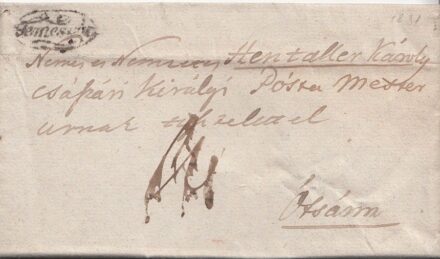 Temesvár
1831
Nemes és Nemzetes Hentaller Károly
császári Királyi Pósta Mester
urnak
Ótsárra